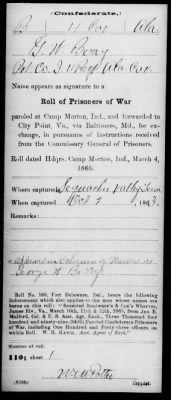 Confederate.
B 4 Cav Ala.
G. W. Berry
Name appears as signature to a
Roll of Prisoners of War
paroled at Camp Morton, Ind., and forwarded to
City Point, Va., via Baltimore, Md., for ex-
change, in pursuance of instructions received
from the Commissary General of Prisoners.
Roll dated Hdqrs. Camp Morton, Ind., March 4,
1865.
Where captured Sequachie Valley Tenn
When captured Oct 2, 1863.
Remarks:
appears in Column of Names as
George W. Berry
Roll No. 160, Fort Delaware, Del., bears the following
indorsement which also applies to the men whose names are
borne on this roll: "Received Boulware's & Cox's Wharves,
James Riv., Va., March 10th, 11th & 12th, 1865, from Jno. E.
Mulford, Col. & U. S. Asst. Agt. Exch., Three Thousand four
hundred and ninety-nine (3499) Paroled Confederate Prisoners
of War, including One Hundred and Forty-three officers, on
within Roll. W. H. Hatch, Asst. Agent of Exch."
Number of roll:
110; sheet 1
Copyist.